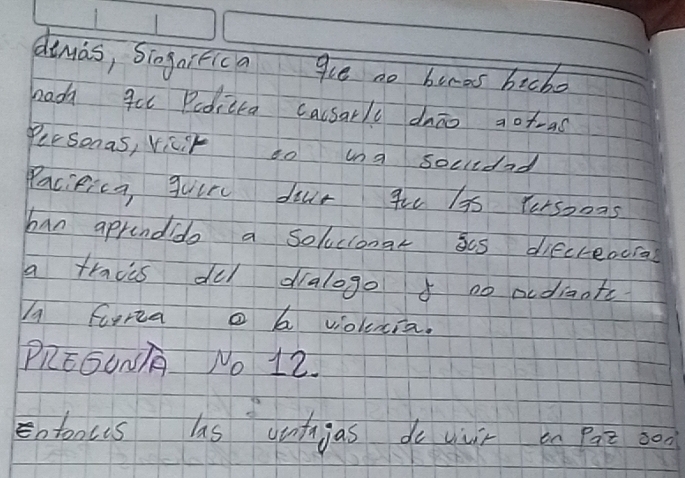 demás, Singnifica que no bemos hecho
nada que Pudiera causarle dnão aotras
Personas, vivir en una sociedad
Pacifica, quiere decir que las Personas
han aprendido a solucionar sus diferencias
a través del dialogo y no mediante
la fuerza o la violencia.
PREGUNTA No 12.
entonces las ventajas de vivir en Paz son